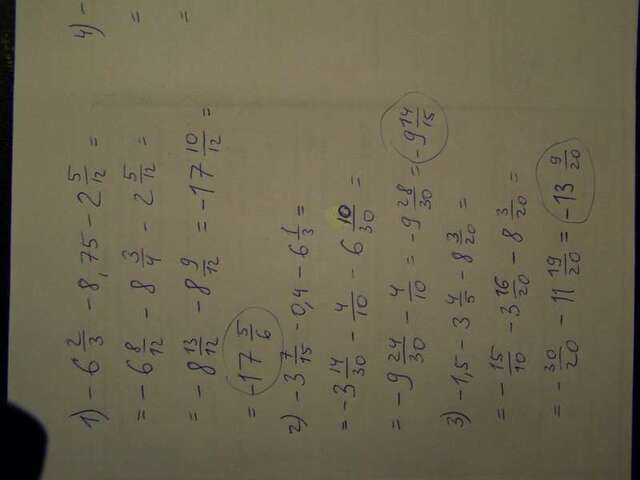 1) -6 2/3 - 8,75 - 2 5/12 =
= -6 8/12 - 8 3/4 - 2 5/12 =
= -8 13/12 - 8 9/12 = -17 10/12 =
= -17 5/6
2) -3 7/15 - 0,4 - 6 1/3 =
= -3 14/30 - 4/10 - 6 10/30 =
= -9 24/30 - 4/10 = -9 28/30 = -9 14/15
3) -1,5 - 3 4/5 - 8 3/20 =
= -15/10 - 3 16/20 - 8 3/20 =
= -30/20 - 11 19/20 = -13 9/20
4) -
=
=